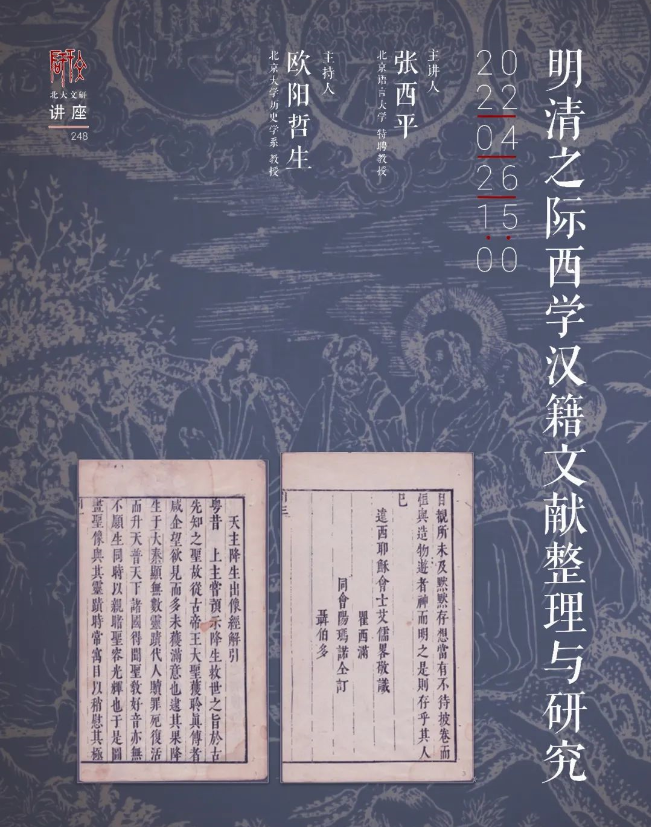 明清之际西学汉籍文献整理与研究
20
22
04
26
15:00
主讲人
张西平
北京语言大学 特聘教授
主持人
欧阳哲生
北京大学历史学系 教授
北大文研
讲座
248
目覩所未及黙黙存想當有不待披卷而
恒與造物遊者神而明之是則存乎其人
已
遠西耶穌會士艾儒畧敬識
瞿西滿
同會陽瑪諾仝訂
聶伯多
天主降生出像經解引
粵昔 上主嘗預示降生救世之旨於古
先知之聖故從古帝王大聖獲聆眞傳者
咸企望欲見而多未獲滿意也逮其果降
生于大秦顯無數靈蹟代人贖罪死復活
而升天普天下諸國得聞聖敎好音亦無
不願生同時以親睹聖容光輝也于是圖
畫聖像與其靈蹟時常寓目以稍慰其極